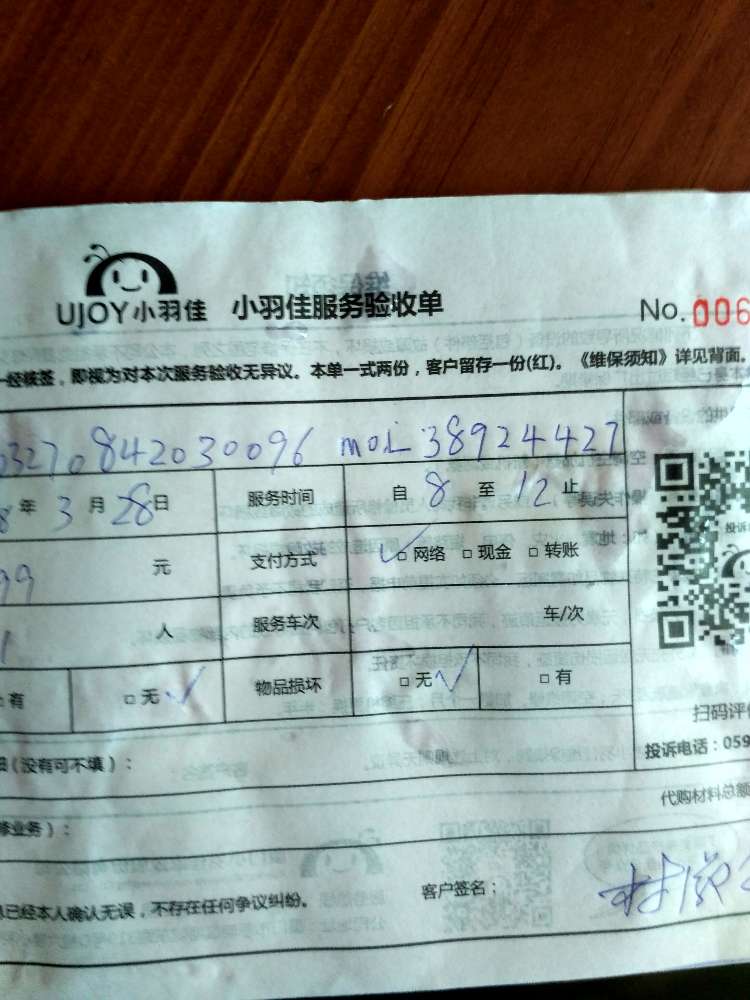 UJOY小羽佳 小羽佳服务验收单 No.006
一经核签，即视为对本次服务验收无异议。本单一式两份，客户留存一份(红)。《维保须知》详见背面。
03270842030096 38924427
年 3 月 28 日 服务时间 自 8 至 12 止
99 元 支付方式 ✓□网络 □现金 □转账
1 人 服务车次 车/次
□有 □无✓ 物品损坏 □无✓ □有
扫码评
(没有可不填)： 投诉电话：059
代购材料总额
修业务)：
已经本人确认无误，不存在任何争议纠纷。 客户签名：